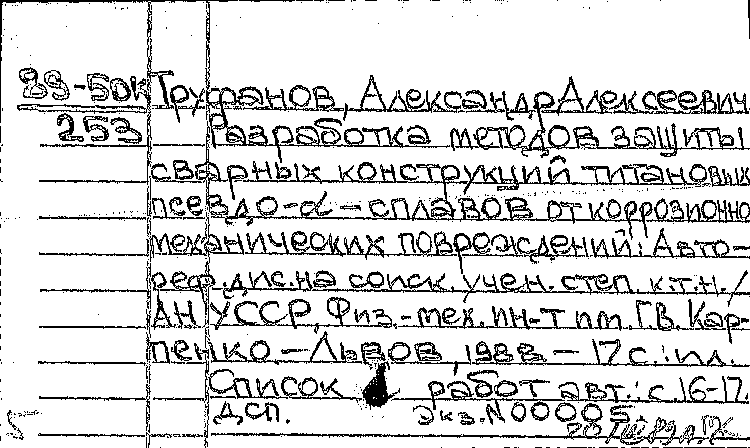 89-50к Труфанов, Александр Алексеевич
253 Разработка методов защиты
сварных конструкций титановых
псевдо-α-сплавов от коррозионно
механических повреждений: Авто-
реф. дис. на соиск. учен. степ. к.т.н. /
АН УССР, Физ.-мех. ин-т им. Г.В. Кар-
пенко. - Львов, 1988. - 17 с.: ил.
Список работ авт.: с. 16-17.
Дсп. Экз. N 00005.